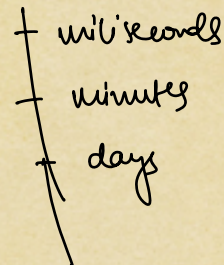 miliseconds
minutes
days